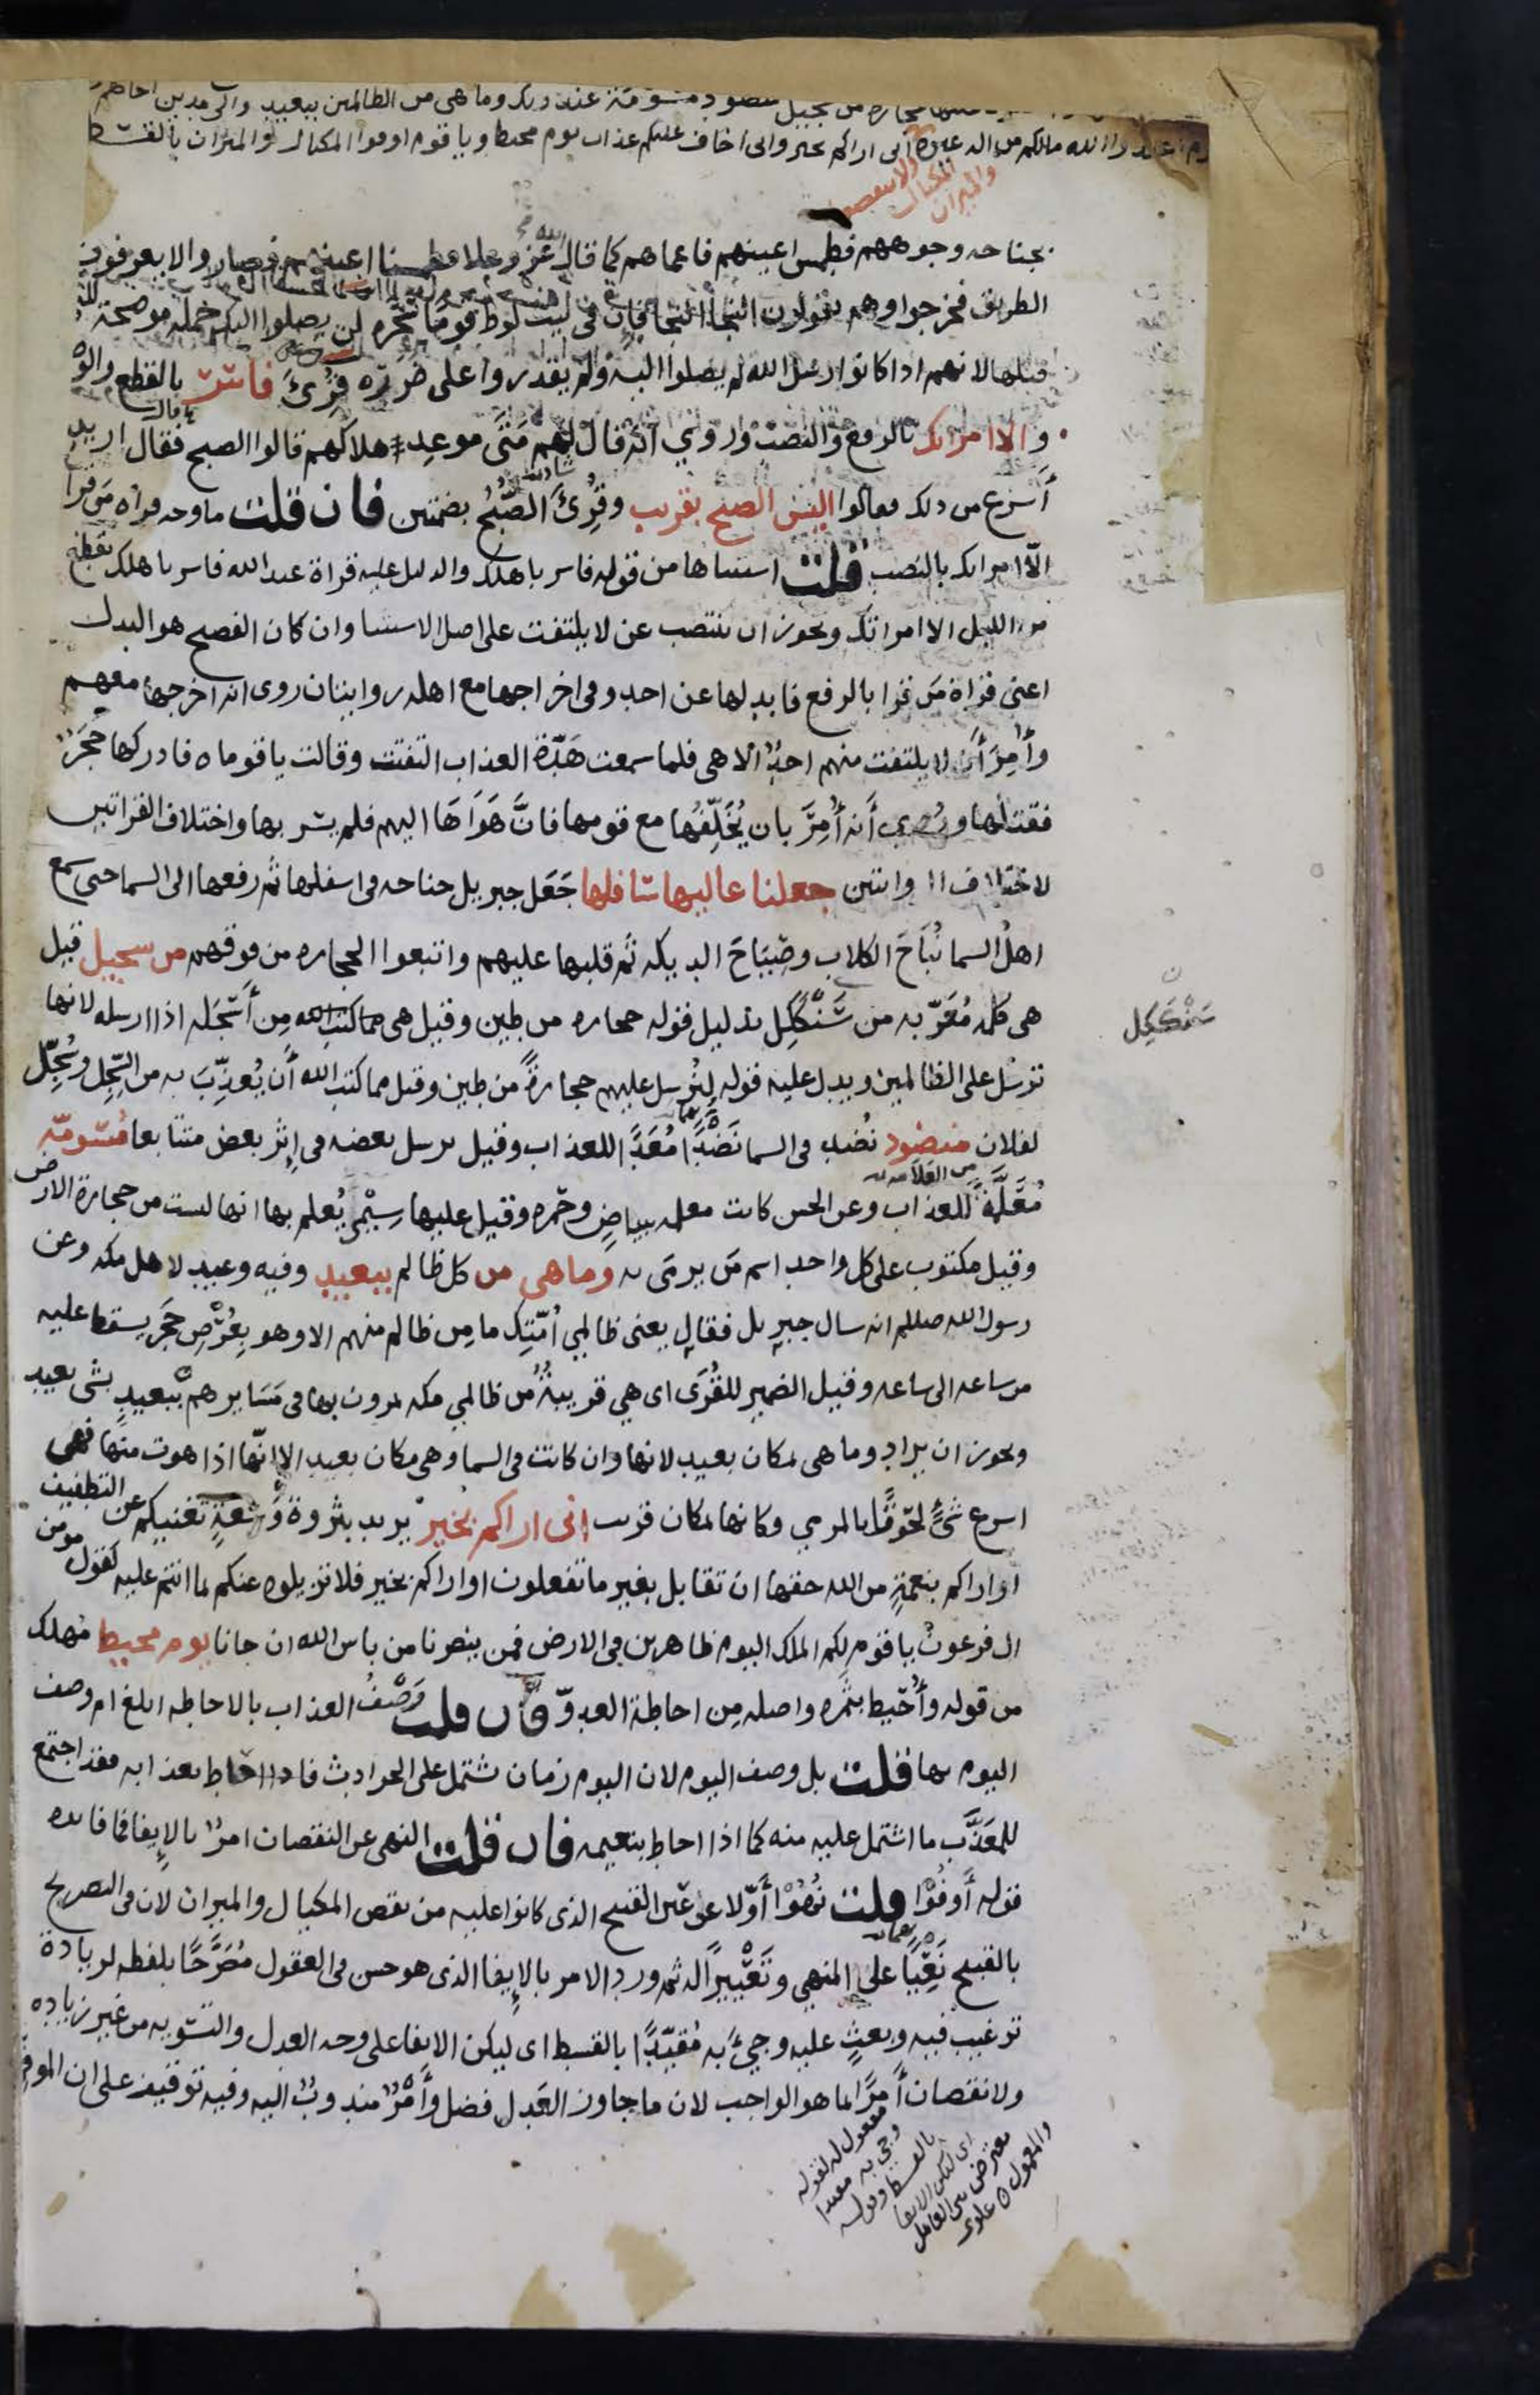 منضود مسومة عند ربك وما هي من الظالمين ببعيد والى مدين اخاهم
الله مالكم من اله غيره اني اراكم بخير واني اخاف عليكم عذاب يوم محيط ويا قوم اوفوا المكيال والميزان بالقسط
المكيال
والميزان
بجناحه وجوههم فطمس اعينهم فاعماهم كما قال الله عز وعلا فطمسنا اعينهم فصاروا لا يعرفون
الطريق فخرجوا وهم يقولون النجا النجا فان في بيت لوط قوما سحره لن يصلوا اليك جمله موضحة للتي
قبلها لانهم اذا كانوا رسل الله لم يصلوا اليه ولم يقدروا على ضرره قرئ فاسر بالقطع والوصل
والا امراتك بالرفع والنصب وروي انه قال لهم متى موعد هلاكهم قالوا الصبح فقال اريد
أسرع من ذلك فقالوا اليس الصبح بقريب وقرئ الصُّبُح بضمتين فان قلت ما وجه قراه من قرا
الا امراتك بالنصب قلت استثناها من قوله فاسر باهلك والدليل عليه قراة عبد الله فاسر باهلك بقطع
من الليل الا امراتك ويجوز ان ينتصب عن لا يلتفت على اصل الاستثنا وان كان الفصيح هو البدل
اعني قراة من قرا بالرفع فابدلها عن احد وفي اخراجها مع اهله روايتان روى انه اخرجها معهم
وأُمِرَ أن لا يلتفت منهم احدٌ الا هي فلما سمعت هَدّة العذاب التفتت وقالت يا قوماه فادركها حَجَرٌ
فقتلها وروي أنه أُمِرَ بان يُخَلِّفَها مع قومها فانَّ هَوَاهَا اليهم فلم يسر بها واختلاف القراتين
لاختلاف الروايتين جعلنا عاليها سافلها جَعَل جبريل جناحه في اسفلها ثم رفعها الى السما حتى سمع
اهلُ السما نُبَاحَ الكلاب وصِيَاحَ الديكه ثم قلبها عليهم واتبعوا الحجاره من فوقهم من سجيل قيل
هي كلمه مُعَرّبه من سَنْگكِل بدليل قوله حجاره من طين وقيل هي مما كتب الله مِن أَسْجَلَه اذا ارسله لانها
ترسل على الظالمين ويدل عليه قوله لِنُرسل عليهم حجارةً من طين وقيل مما كتب الله أن يُعذِّبَ به من السِّجِل وسَجّل
لفلان منضود نُضد في السما نَضْدًا مُعَدًّا للعذاب وقيل يرسل بعضه في اِثر بعض متتابعا مسومة
من العلامه
مُعَلَّمَةً للعذاب وعن الحسن كانت معلمه ببياضٍ وحمره وقيل عليها سِيْمَى يُعلم بها انها ليست من حجارة الارض
وقيل مكتوب على كل واحد اسم مَن يرمَى به وما هي من كل ظالم ببعيد وفيه وعيد لاهل مكه وعن
رسول الله صللم انه سال جبريل فقال يعني ظالمي اُمّتِك ما مِن ظالم منهم الا وهو بِعُرْضِ حَجَر يسقط عليه
من ساعه الى ساعه وقيل الضمير للقُرَى اى هي قريبةٌ من ظالمي مكه يمرون بها في مَسَايرهم ببعيد بشى بعيد
ويجوز ان يراد وما هي بمكان بعيد لانها وان كانت في السما وهي مكان بعيد الا انّها اذا هوت منها فهى
اسرع شىءٍ لحُوقًا بالمرمي وكانها بمكان قريب اني اراكم بخير يريد بثروة وسَعَةٍ تغنيكم عن التطفيف
او اراكم بنعمةٍ من الله حقها ان تقابل بغير ما تفعلون او اراكم بخير فلا تزيلوه عنكم بما انتم عليه كقول مومن
ال فرعون يا قوم لكم الملك اليوم ظاهرين في الارض فمن ينصرنا من باس الله ان جانا يوم محيط مُهلك
من قوله وأُحيط بثمره واصله مِن احاطة العدوّ فان قلت وصفُ العذاب بالاحاطه ابلغ ام وصف
اليوم بها قلت بل وصف اليوم لان اليوم زمان يشتمل على الحوادث فاذا احاط بعذابه فقد اجتمع
للمعَذَّب ما اشتمل عليه منه كما اذا احاط بنعيمه فان قلت النهى عن النقصان امرٌ بالايفا فما فايده
قوله أَوفُوْا قلت نُهُوْا أوّلا عن عَين القبيح الذى كانوا عليه من نقص المكيال والميزان لان في التصريح
بالقبيح نَعْيًا على المنهي وتَعْيِيرًا له ثم ورد الامر بالايفا الذى هو حسن في العقول مُصَرَّحًا بلفظه لزيادة
ترغيب فيه وبعثٍ عليه وجىءَ به مُقيّدًا بالقسط اى ليكن الايفا على وجه العدل والتسويه من غير زياده
ولا نقصان أمرًا بما هو الواجب لان ما جاوز العَدل فضل وأمرٌ مندوبٌ اليه وفيه توقيف على ان الموفِي
سَنْگكِل
مفعول له لقوله
وجى به مقيدا
بالقسط وقوله
اى ليكن الايفا
معترض بين العامل
والمعمول ه علوى